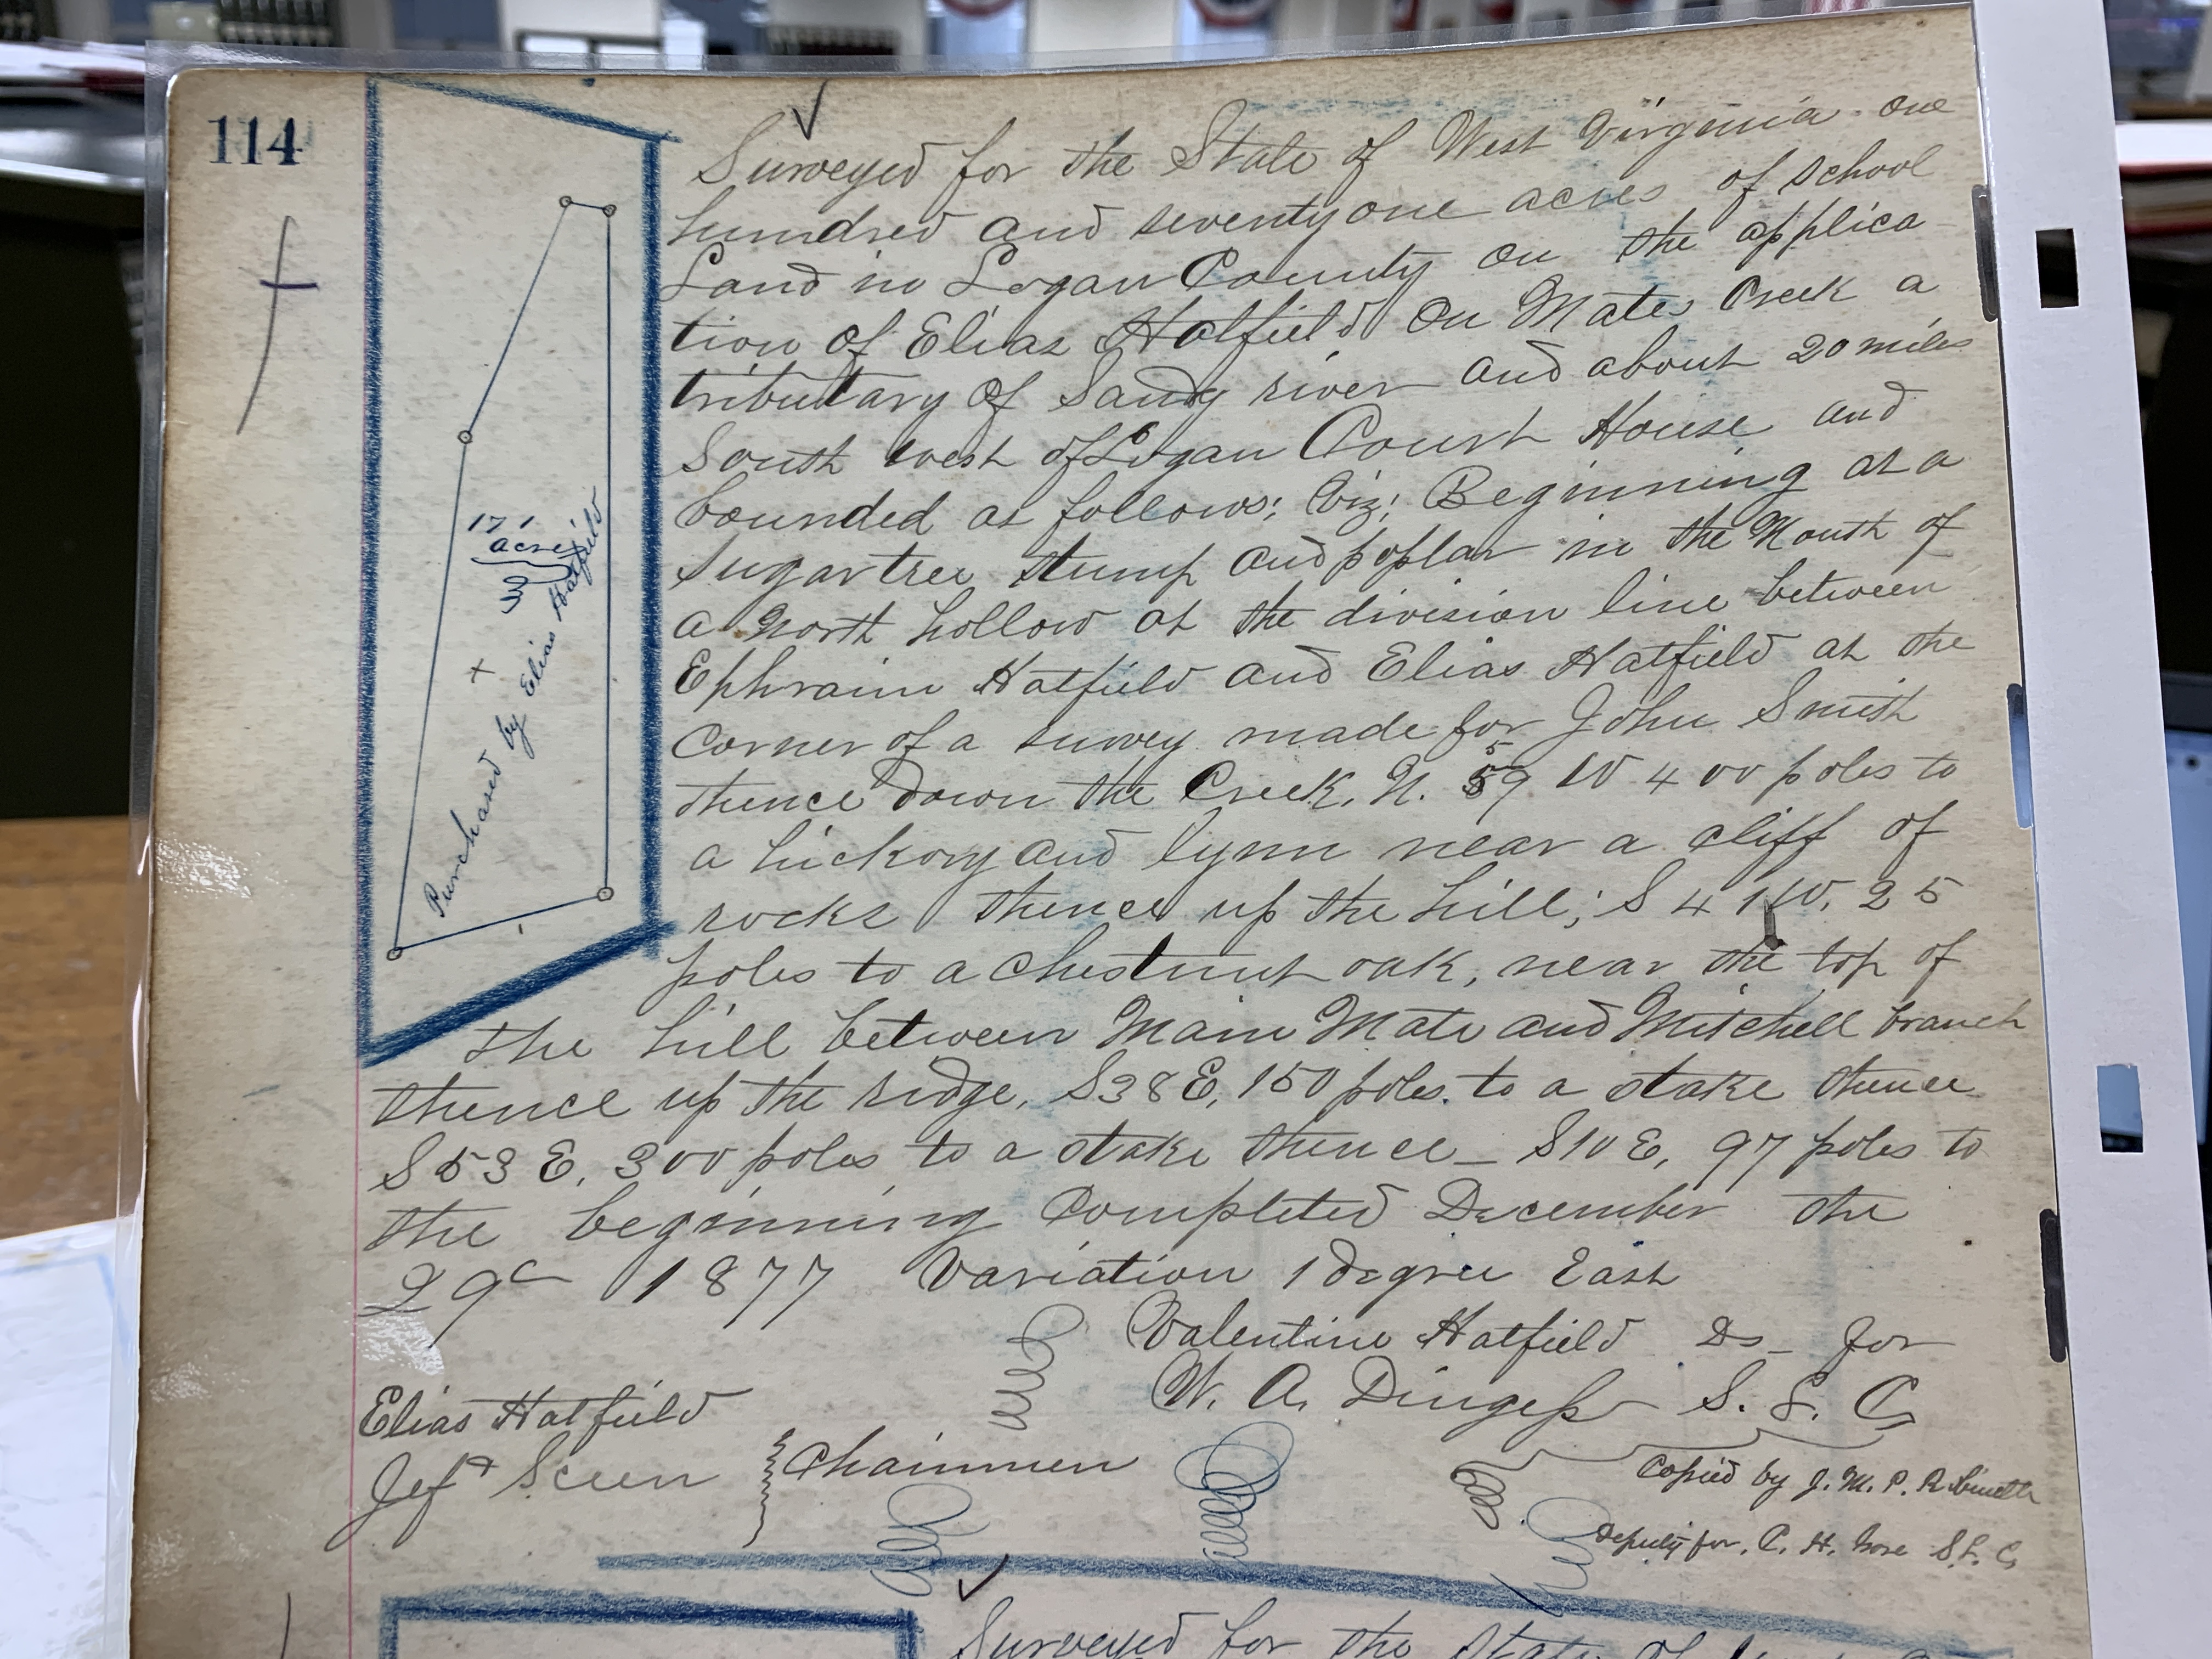 114
Surveyed for the State of West Virginia one
hundred and seventy one acres of school
Land in Logan County on the applica-
tion of Elias Hatfield On Mates Creek a
tributary of Sandy river and about 20 miles
South west of Logan Court House and
bounded as follows; Viz; Beginning at a
sugartree stump and poplar in the Mouth of
a North hollow at the division line between
Ephraim Hatfield and Elias Hatfield at the
corner of a survey made for John Smith
thence down the Creek, N. 59 W 400 poles to
a hickory and lynn near a cliff of
rocks thence up the hill; S 41 W. 25
poles to a chestnut oak, near the top of
the hill between Main Mate and Mitchell branch
thence up the ridge, S38E, 150 poles. to a stake thence
S53E, 300 poles to a stake thence - S10E, 97 poles to
the beginning Completed December the
29 1877 Variation 1 degree East
Valentine Hatfield Ds - for
W. A. Dingess S. L. C
Elias Hatfield
Jef Chainmen
Copied by J. M. P.
Deputy for, C. H. S. L. C
171
acres
Purchased by Elias Hatfield
Surveyed for the State of